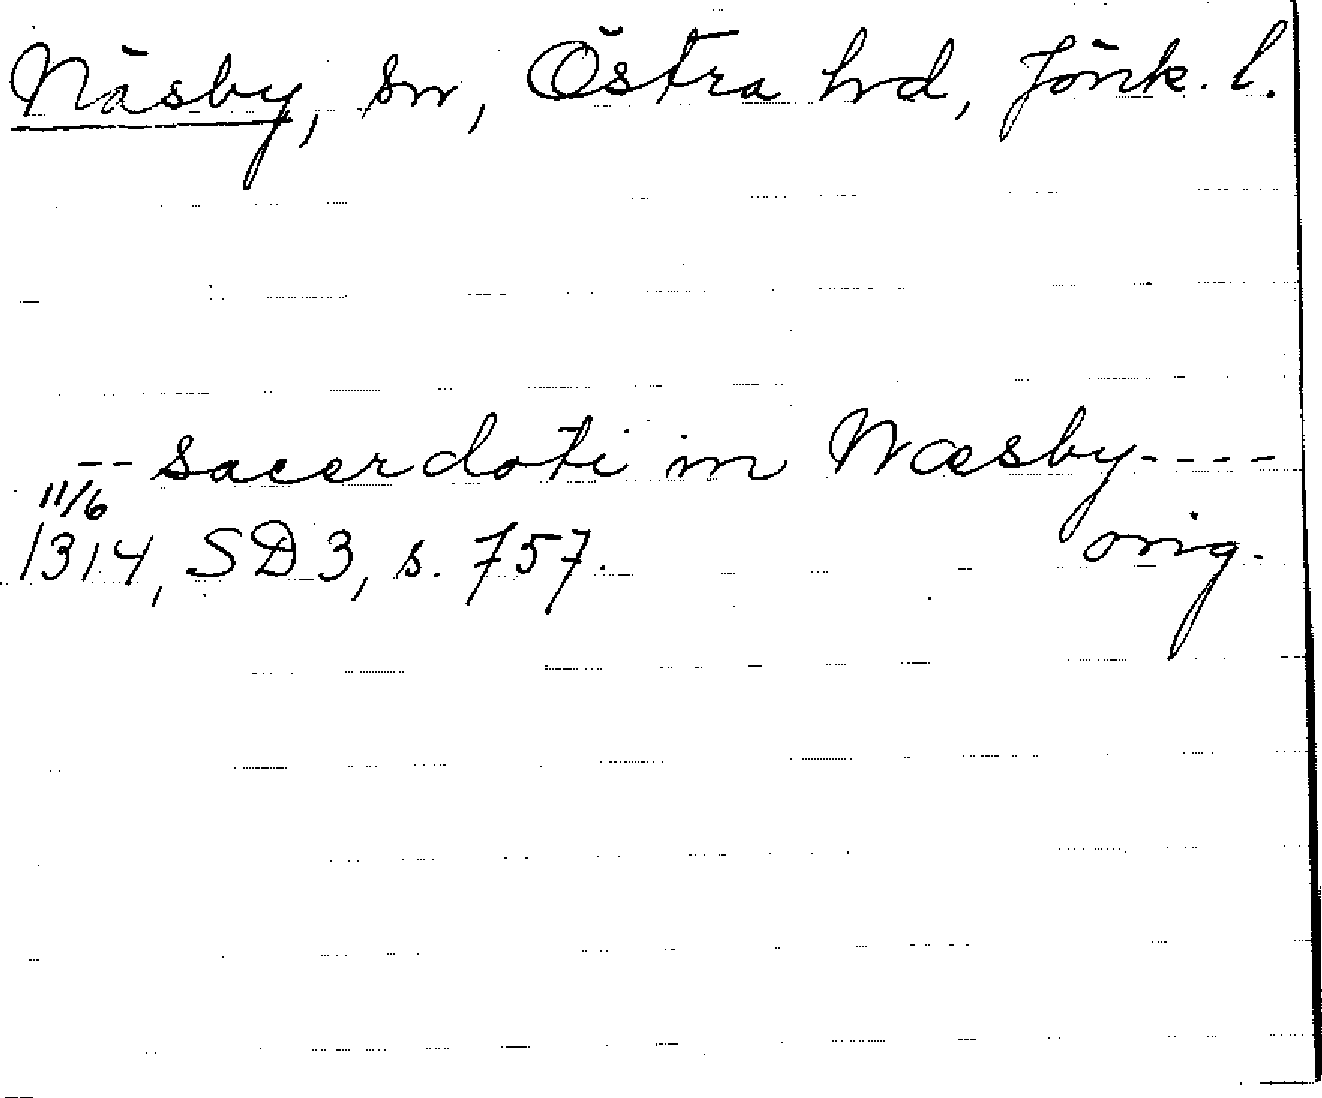 Näsby, sn, Östra hd, Jönk. l.
-- sacerdoti in Næsby ----
11/6
1314, SD 3, s. 757. orig.